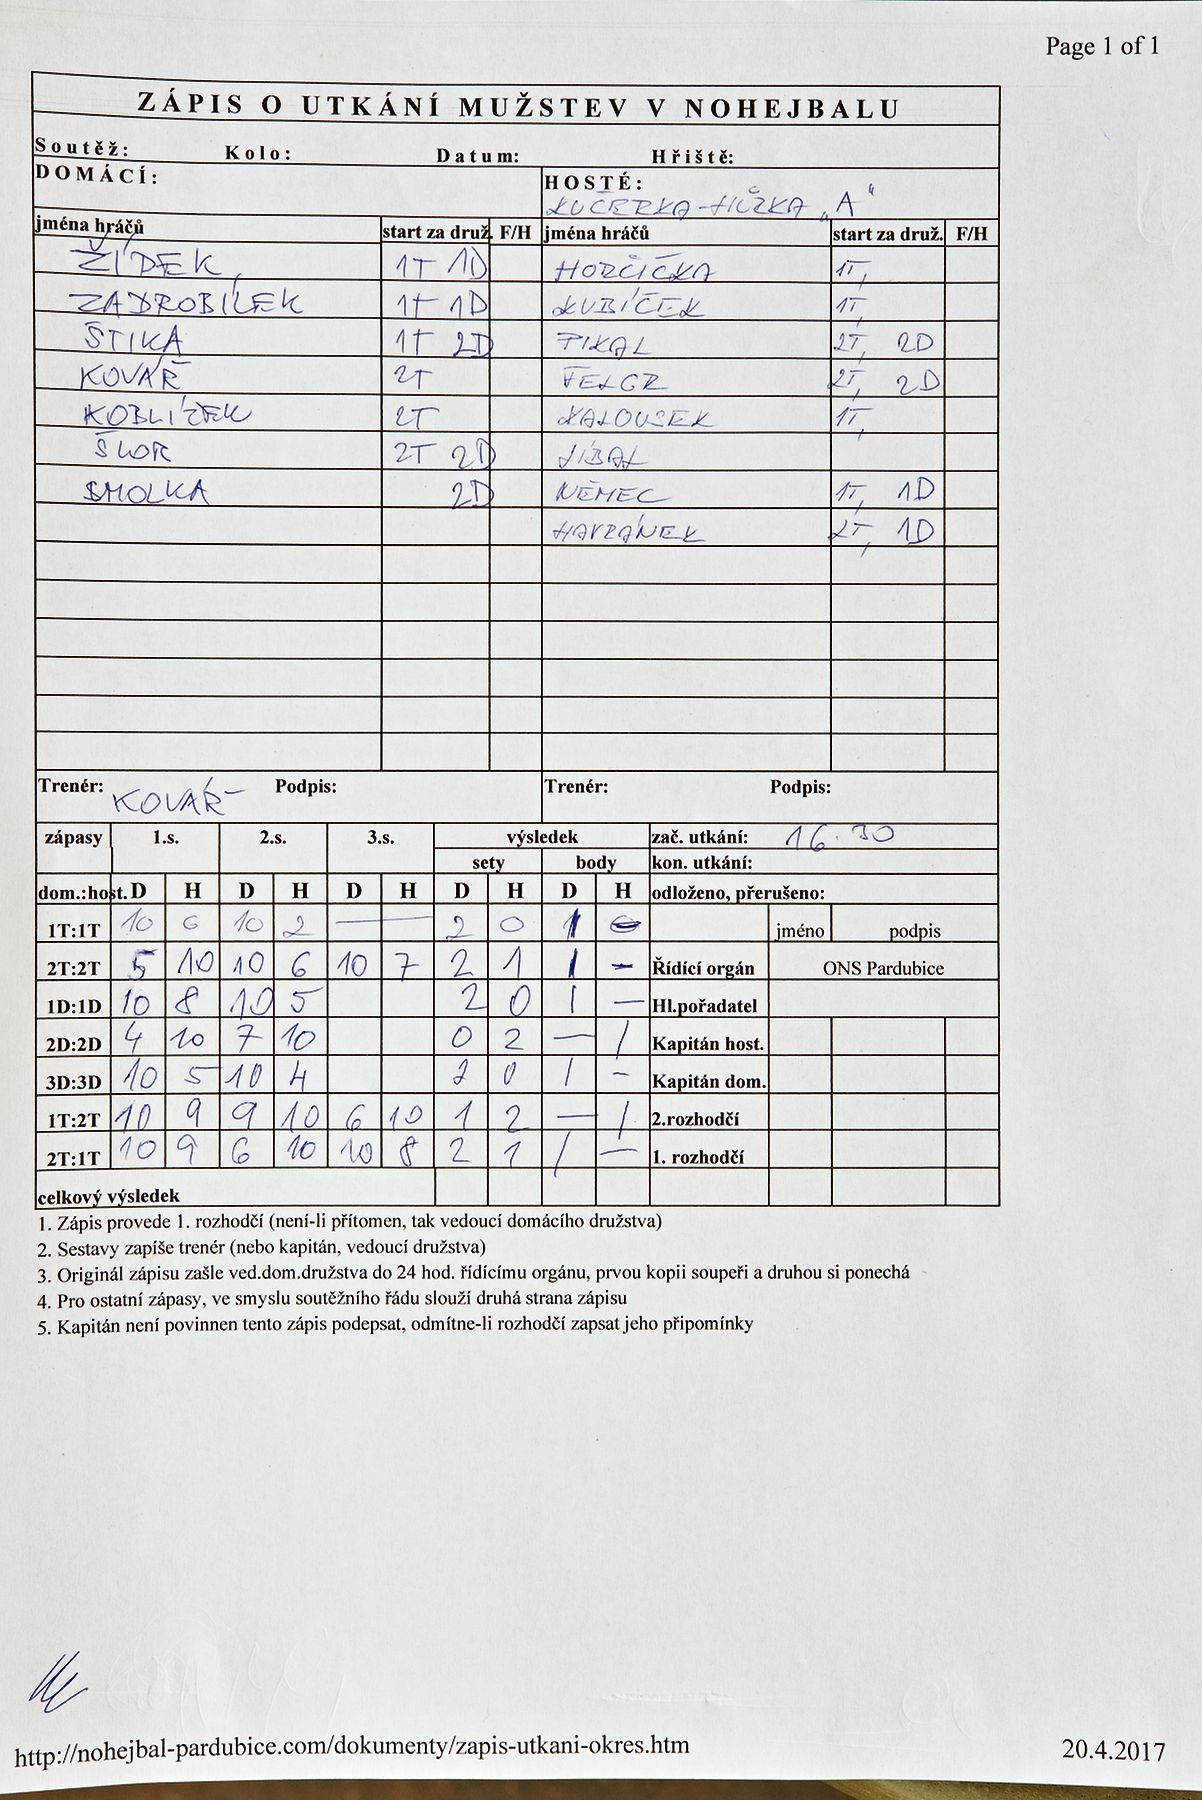 Page 1 of 1
ZÁPIS O UTKÁNÍ MUŽSTEV V NOHEJBALU
Soutěž: Kolo: Datum: Hřiště:
DOMÁCÍ: HOSTÉ:
KUČERKA-HŮRKA „A“
jména hráčů start za druž. F/H jména hráčů start za druž. F/H
ŽÍDEK, 1T 1D HORČIČKA 1T,
ZADROBÍLEK 1T 1D KUBÍČEK 1T,
ŠTIKA 1T 2D PIKAL 2T, 2D
KOVÁŘ 2T FELGR 2T, 2D
KOBLÍŽEK 2T KALOUSEK 1T,
ŠLOR 2T 2D LÍBAL
SMOLKA 2D NĚMEC 1T, 1D
HAVRÁNEK 2T, 1D
Trenér: KOVÁŘ Podpis: Trenér: Podpis:
zápasy 1.s. 2.s. 3.s. výsledek zač. utkání: 16.30
sety body kon. utkání:
dom.:host. D H D H D H D H D H odloženo, přerušeno:
1T:1T 10 6 10 2 — 2 0 1 0 jméno podpis
2T:2T 5 10 10 6 10 7 2 1 1 – Řídící orgán ONS Pardubice
1D:1D 10 8 10 5 2 0 1 — Hl.pořadatel
2D:2D 4 10 7 10 0 2 — 1 Kapitán host.
3D:3D 10 5 10 4 2 0 1 – Kapitán dom.
1T:2T 10 9 9 10 6 10 1 2 — 1 2.rozhodčí
2T:1T 10 9 6 10 10 8 2 1 1 — 1. rozhodčí
celkový výsledek
1. Zápis provede 1. rozhodčí (není-li přítomen, tak vedoucí domácího družstva)
2. Sestavy zapíše trenér (nebo kapitán, vedoucí družstva)
3. Originál zápisu zašle ved.dom.družstva do 24 hod. řídícímu orgánu, prvou kopii soupeři a druhou si ponechá
4. Pro ostatní zápasy, ve smyslu soutěžního řádu slouží druhá strana zápisu
5. Kapitán není povinnen tento zápis podepsat, odmítne-li rozhodčí zapsat jeho připomínky
http://nohejbal-pardubice.com/dokumenty/zapis-utkani-okres.htm 20.4.2017